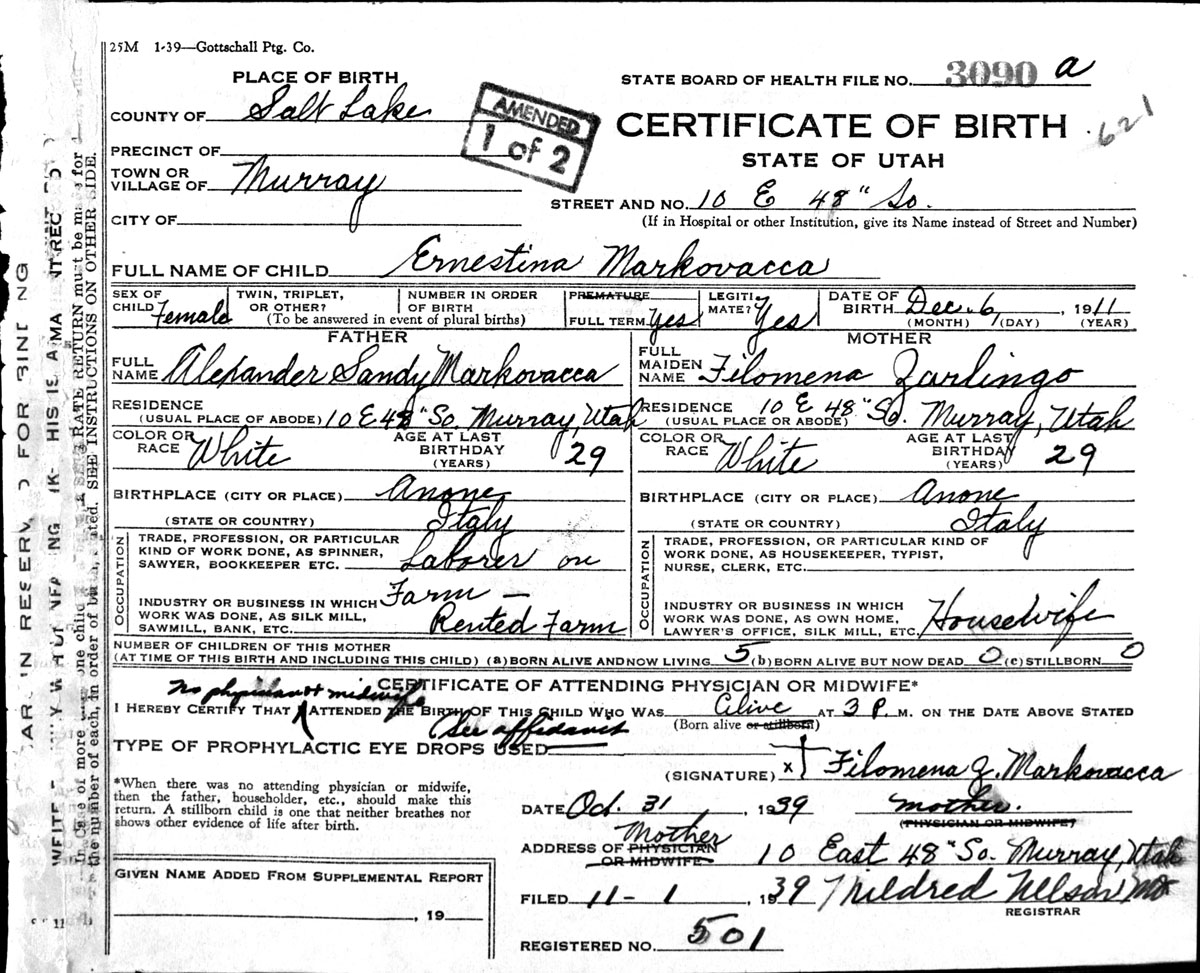 25M 1-39—Gottschall Ptg. Co.
PLACE OF BIRTH
STATE BOARD OF HEALTH FILE NO. 3090 a
COUNTY OF Salt Lake
AMENDED
1 of 2
CERTIFICATE OF BIRTH
621
STATE OF UTAH
PRECINCT OF
TOWN OR
VILLAGE OF Murray
STREET AND NO. 10 E 48" So.
CITY OF
(If in Hospital or other Institution, give its Name instead of Street and Number)
FULL NAME OF CHILD Ernestina Markovacca
SEX OF
CHILD Female
TWIN, TRIPLET,
OR OTHER?
NUMBER IN ORDER
OF BIRTH
(To be answered in event of plural births)
PREMATURE
FULL TERM Yes
LEGITI
MATE? Yes
DATE OF
BIRTH Dec. 6, 1911
(MONTH) (DAY) (YEAR)
FATHER
FULL
NAME Alexander Sandy Markovacca
RESIDENCE
(USUAL PLACE OF ABODE) 10 E 48" So. Murray, Utah
COLOR OR
RACE White
AGE AT LAST
BIRTHDAY 29
(YEARS)
BIRTHPLACE (CITY OR PLACE) Anone,
(STATE OR COUNTRY) Italy
OCCUPATION
TRADE, PROFESSION, OR PARTICULAR
KIND OF WORK DONE, AS SPINNER,
SAWYER, BOOKKEEPER ETC. Laborer on
INDUSTRY OR BUSINESS IN WHICH Farm —
WORK WAS DONE, AS SILK MILL,
SAWMILL, BANK, ETC. Rented Farm
MOTHER
FULL
MAIDEN
NAME Filomena Zarlingo
RESIDENCE 10 E 48" So. Murray, Utah
(USUAL PLACE OR ABODE)
COLOR OR
RACE White
AGE AT LAST
BIRTHDAY 29
(YEARS)
BIRTHPLACE (CITY OR PLACE) Anone
(STATE OR COUNTRY) Italy
OCCUPATION
TRADE, PROFESSION, OR PARTICULAR KIND OF
WORK DONE, AS HOUSEKEEPER, TYPIST,
NURSE, CLERK, ETC.
INDUSTRY OR BUSINESS IN WHICH
WORK WAS DONE, AS OWN HOME,
LAWYER'S OFFICE, SILK MILL, ETC. Housewife
NUMBER OF CHILDREN OF THIS MOTHER
(AT TIME OF THIS BIRTH AND INCLUDING THIS CHILD) (a) BORN ALIVE AND NOW LIVING 5 (b) BORN ALIVE BUT NOW DEAD 0 (c) STILLBORN 0
CERTIFICATE OF ATTENDING PHYSICIAN OR MIDWIFE*
No physician or midwife
I HEREBY CERTIFY THAT ATTENDED THE BIRTH OF THIS CHILD WHO WAS Alive AT 3 P. M. ON THE DATE ABOVE STATED
See affidavit
(Born alive or stillborn)
TYPE OF PROPHYLACTIC EYE DROPS USED
(SIGNATURE) x Filomena Z. Markovacca
*When there was no attending physician or midwife,
then the father, householder, etc., should make this
return. A stillborn child is one that neither breathes nor
shows other evidence of life after birth.
DATE Oct. 31, 1939 mother.
(PHYSICIAN OR MIDWIFE)
Mother
ADDRESS OF PHYSICIAN
OR MIDWIFE 10 East 48" So. Murray, Utah
GIVEN NAME ADDED FROM SUPPLEMENTAL REPORT
, 19
FILED 11-1, 1939 Mildred Nelson
REGISTRAR
REGISTERED NO. 501
the number of each, in order of birth, stated. SEE INSTRUCTIONS ON OTHER SIDE.